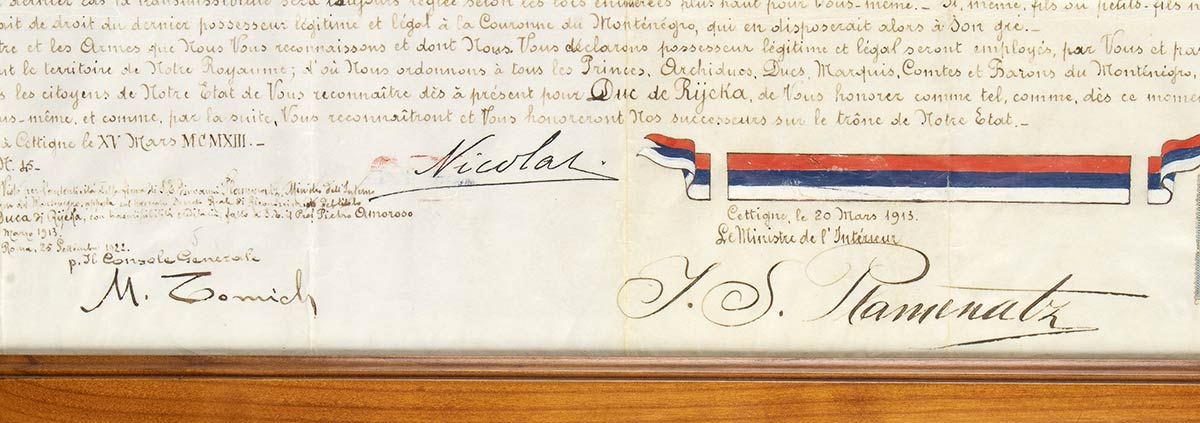 dernier cas la transmissibilité sera toujours réglée selon les lois énumérées plus haut pour Vous-même. — Si, même, fils ou petits-fils
oit de droit du dernier possesseur légitime et légal à la Couronne du Monténégro, qui en disposerait alors à Son gré. —
tre et les Armes que Nous Vous reconnaissons et dont Nous Vous déclarons possesseur légitime et légal seront employés, par Vous et pa
nt le territoire de Notre Royaume; d'où Nous ordonnons à tous les Princes, Archiducs, Ducs, Marquis, Comtes et Barons du Monténégro,
s les citoyens de Notre Etat de Vous reconnaître dès à présent pour Duc de Rijeka, de Vous honorer comme tel, comme, dès ce mome
us-même, et comme, par la suite, Vous reconnaîtront et Vous honoreront Nos successeurs sur le trône de Notre Etat. —
à Cettigne le XV Mars MCMXIII. —
N. 15-
Nicolas.
Visto per l'autenticità della firma di S.E. Giovanni Plamenatz, Ministro dell'Interno
del Montenegro, apposta sul Decreto Reale di riconoscimento del titolo
Duca di Rijeka, con trasmissibilità ereditaria, fatto a S.E. il Prof Pietro Amoroso
Marzo 1913.
Roma, 25 Settembre 1922.
p. Il Console Generale
M. Tomich
Cettigne, le 20 Mars 1913.
Le Ministre de l'Intérieur
J. S. Plamenatz